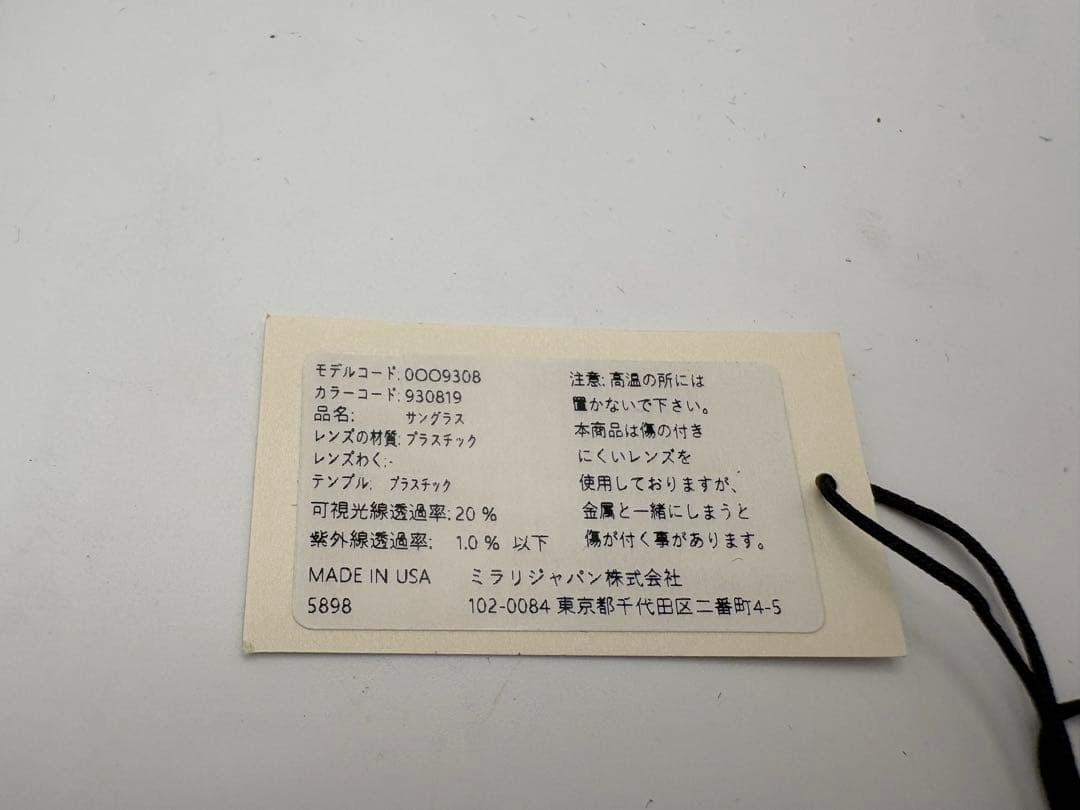 モデルコード: 0OO9308
カラーコード: 930819
品名: サングラス
レンズの材質: プラスチック
レンズわく: -
テンプル: プラスチック
可視光線透過率: 20 %
紫外線透過率: 1.0 % 以下
注意: 高温の所には
置かないで下さい。
本商品は傷の付き
にくいレンズを
使用しておりますが、
金属と一緒にしまうと
傷が付く事があります。
MADE IN USA ミラリジャパン株式会社
5898 102-0084 東京都千代田区二番町4-5